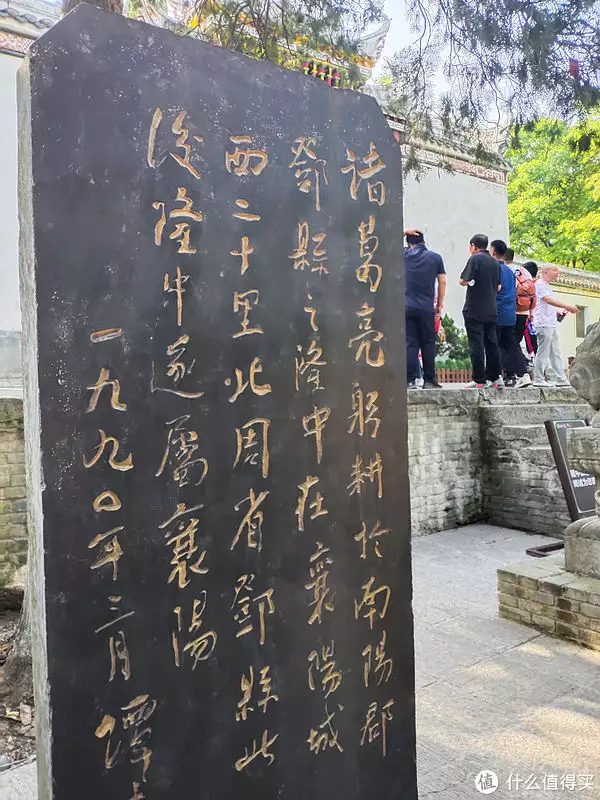 諸葛亮躬耕於南陽郡
鄧縣之隆中在襄陽城
西二十里北周省鄧縣此
後隆中遂屬襄陽
一九九〇年三月譚
值 什么值得买